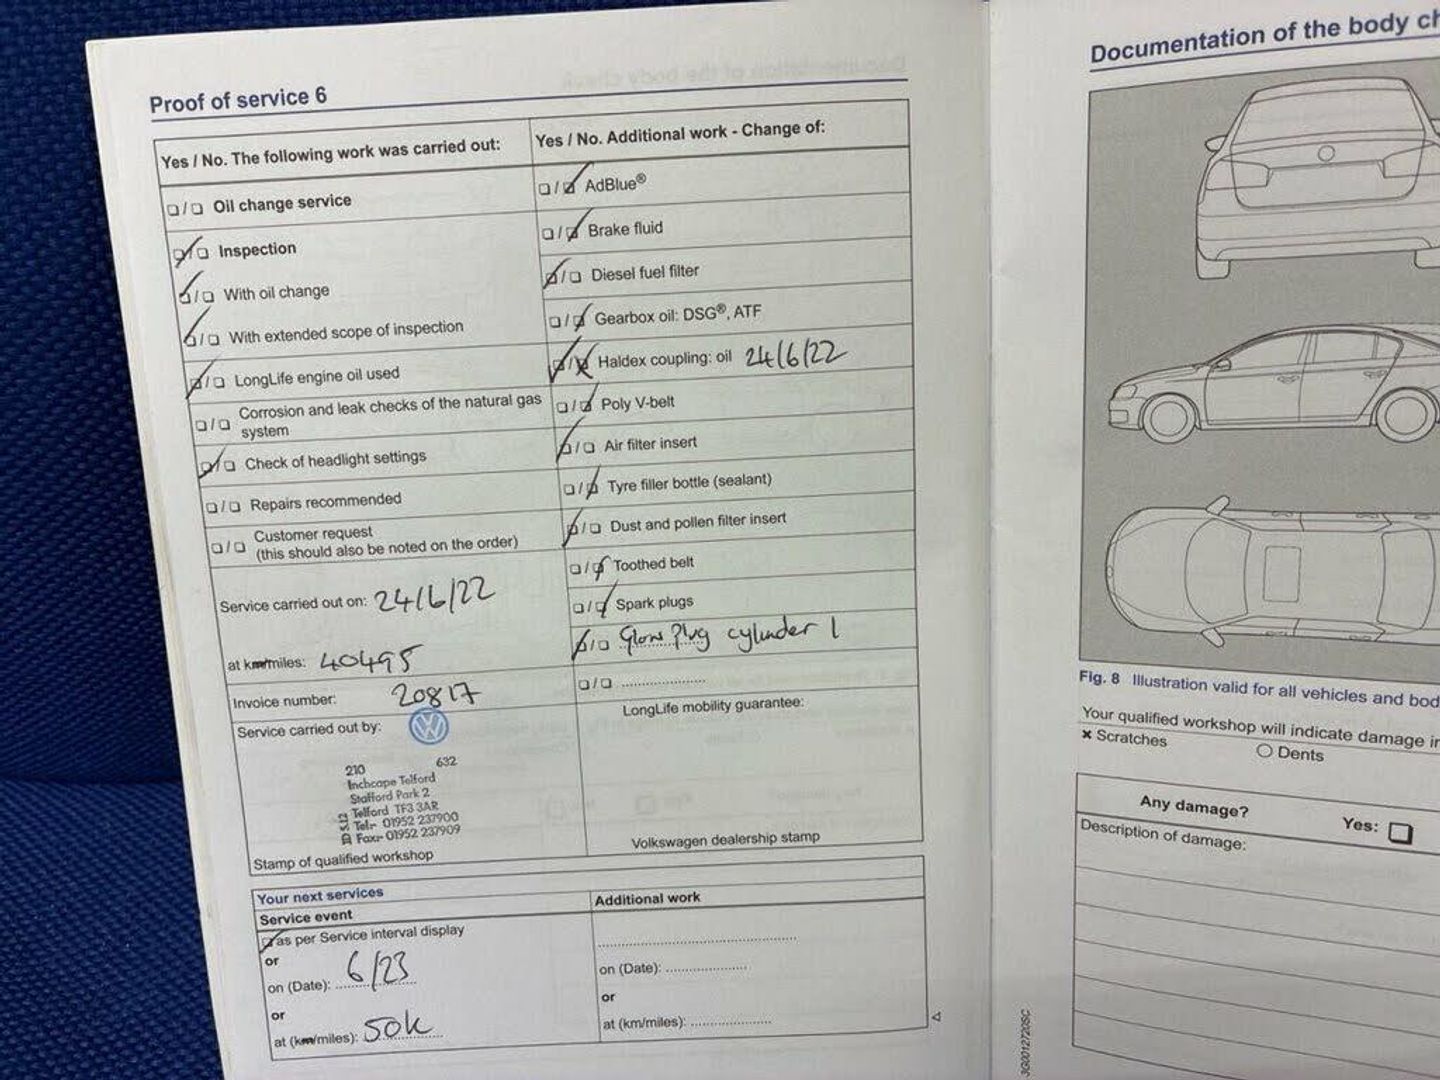 Proof of service 6
Yes / No. The following work was carried out:
Oil change service
Inspection
With oil change
With extended scope of inspection
LongLife engine oil used
Corrosion and leak checks of the natural gas
system
Check of headlight settings
Repairs recommended
Customer request
(this should also be noted on the order)
Service carried out on: 24/6/22
at km/miles: 40495
Invoice number: 20817
Service carried out by:
210 632
Inchcape Telford
Stafford Park 2
Telford TF3 3AR
Tel:- 01952 237900
Fax:- 01952 237909
Stamp of qualified workshop
Yes / No. Additional work - Change of:
AdBlue®
Brake fluid
Diesel fuel filter
Gearbox oil: DSG®, ATF
Haldex coupling: oil 24/6/22
Poly V-belt
Air filter insert
Tyre filler bottle (sealant)
Dust and pollen filter insert
Toothed belt
Spark plugs
Glow Plug cylinder 1
LongLife mobility guarantee:
Volkswagen dealership stamp
Your next services
Service event
as per Service interval display
or
on (Date): 6/23
or
at (km/miles): 50k
Additional work
on (Date):
or
at (km/miles):
Documentation of the body
Fig. 8 Illustration valid for all vehicles and
Your qualified workshop will indicate damage
× Scratches
○ Dents
Any damage?
Yes:
Description of damage:
3G0012720SC